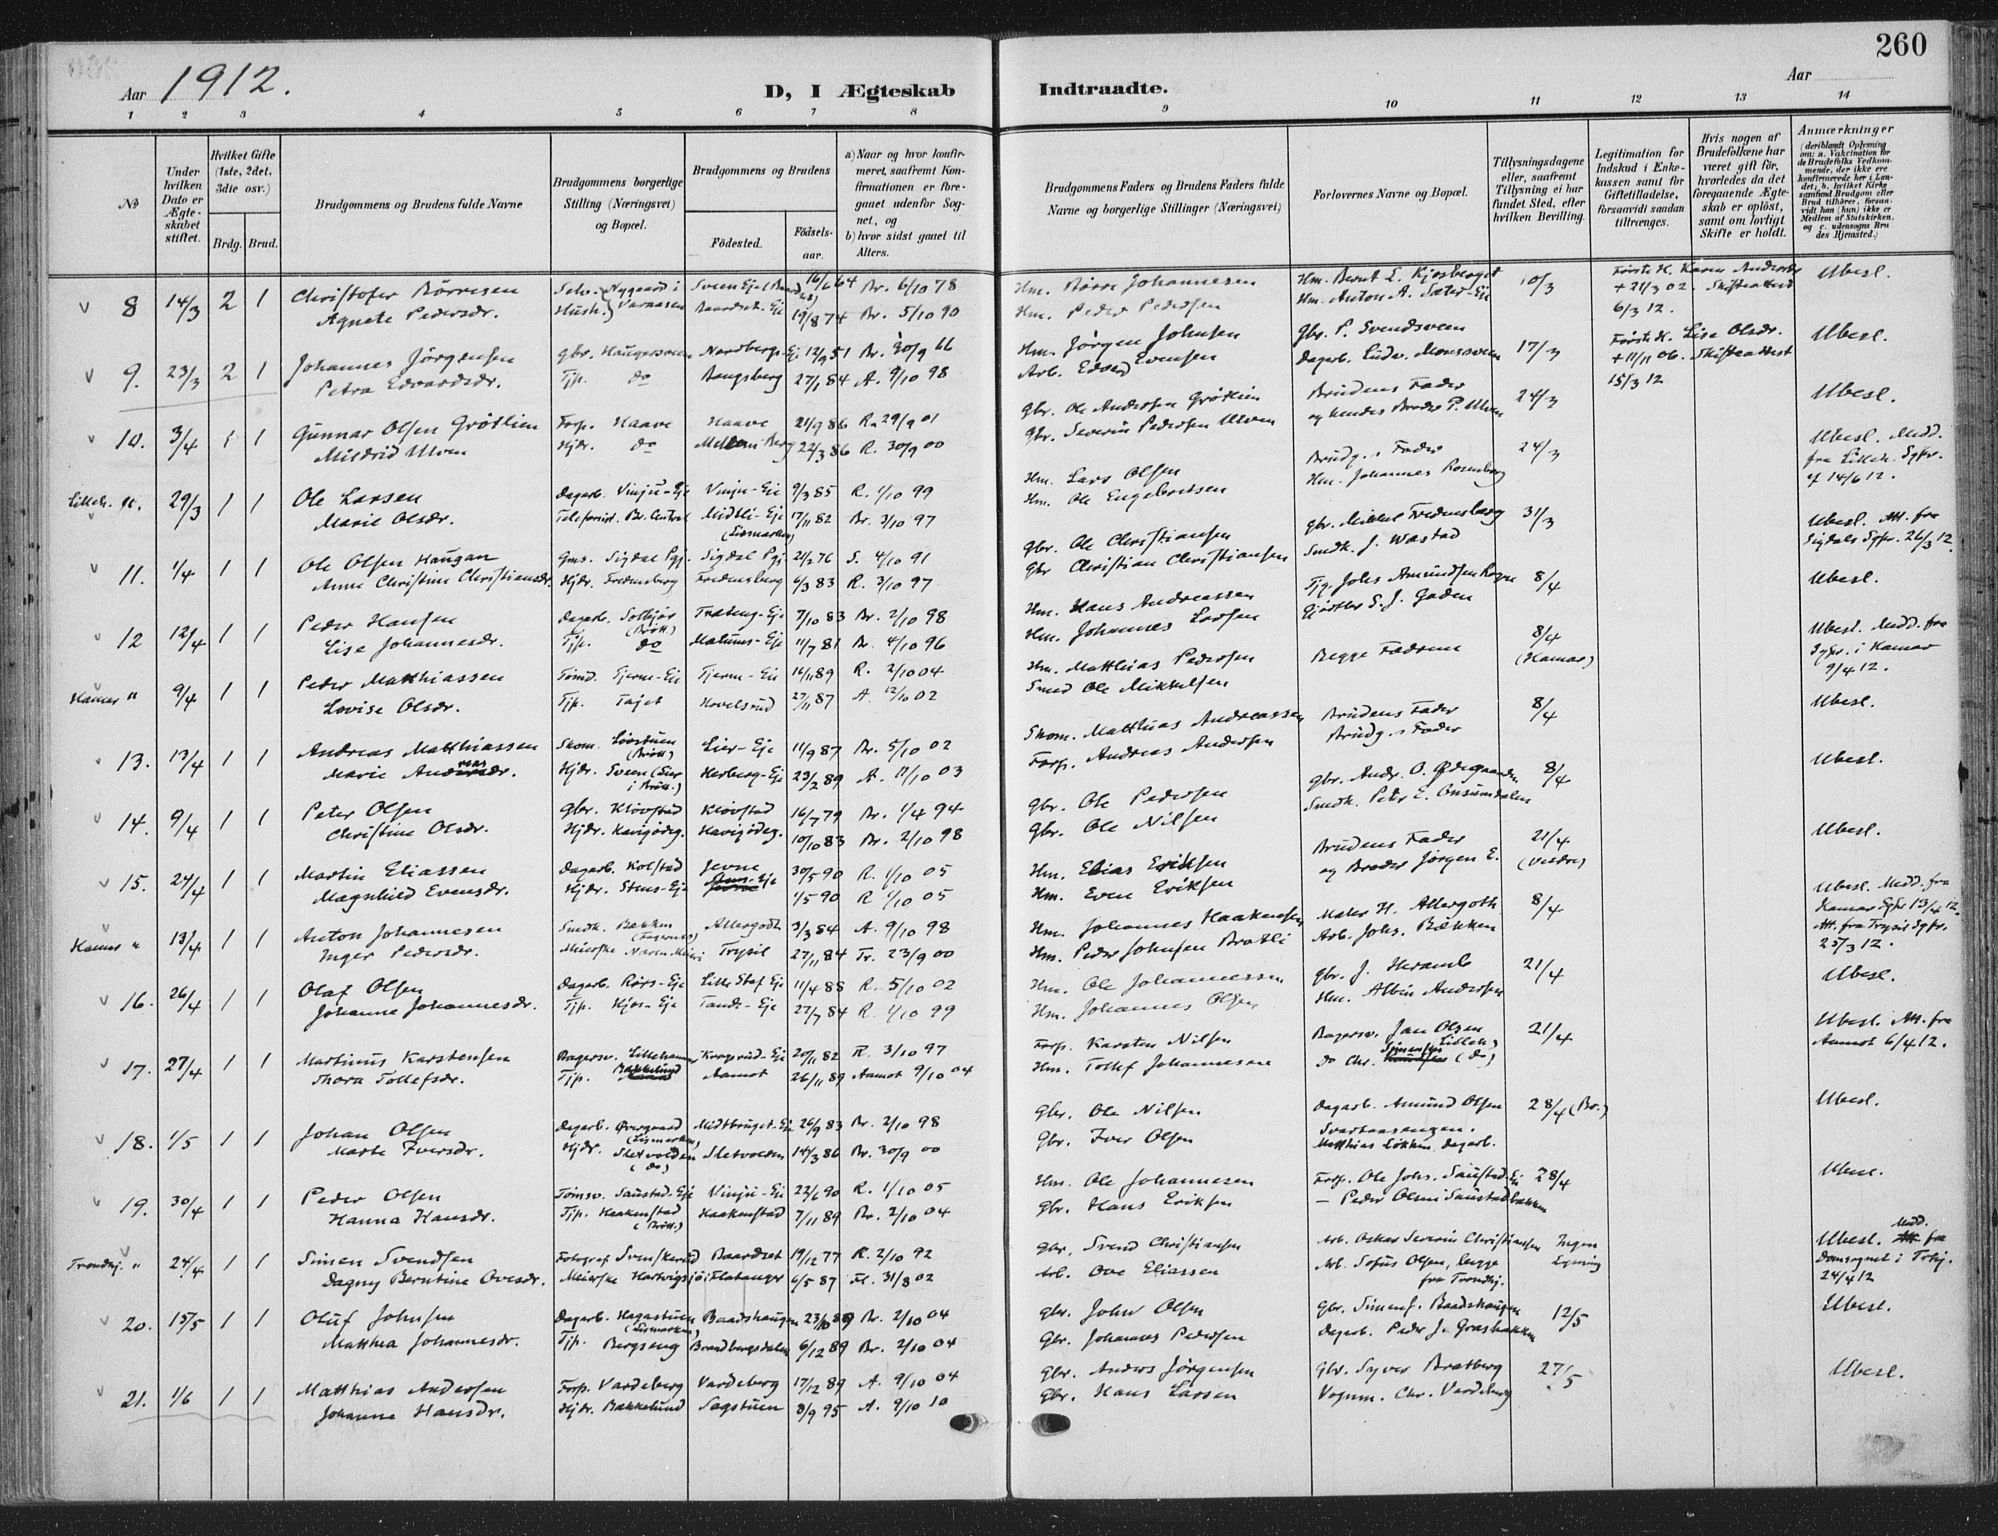 260
Aar 1912.
D, I Ægteskab Indtraadte.
Aar
1 2 3 4 5 6 7 8 9 10 11 12 13 14
No
Under hvilken Dato er Ægteskabet stiftet.
Hvilket Gifte (1ste, 2det, 3die osv.)
Brdg. Brud.
Brudgommens og Brudens fulde Navne
Brudgommens borgerlige Stilling (Næringsvei) og Bopæl.
Brudgommens og Brudens
Födested. Födselsaar.
a) Naar og hvor konfirmeret, saafremt Konfirmationen er foregaaet udenfor Sognet, og
b) hvor sidst gaaet til Alters.
Brudgommens Faders og Brudens Faders fulde Navne og borgerlige Stillinger (Næringsvei)
Forlovernes Navne og Bopæl.
Tillysningsdagene eller, saafremt Tillysning ei har fundet Sted, efter hvilken Bevilling.
Legitimation for Indskud i Enkekassen samt for Giftetilladelse, forsaavidt saadan tiltrænges.
Hvis nogen af Brudefolkene har været gift för, hvorledes da det foregaaende Ægteskab er oplöst, samt om lovligt Skifte er holdt.
Anmærkninger (deriblandt Oplysning om: a. Vakcination for de Brudefolks Vedkommende, der ikke ere konfirmerede her i Landet; b. hvilket Kirkesamfund Brudgom eller Brud tilhører, forsaavidt han (hun) ikke er Medlem af Statskirken, og c. udensogns Brudes Hjemsted.)
8 14/3 2 1 Christofer Börresen Selv. Nygaard i Sveen Eje 16/6 64 Br. 6/10 78 Hm. Börre Johannesen Hm. Bernt E. Kjosberget 10/3 Förste H. Karen Andersdr. Ubesl.
Agnete Pedersdr. Hush. Varnæsen 19/8 74 Br. 5/10 90 Hm. Peder Pedersen Hm. Anton A. Sæter-Eje + 21/3 02. Skifteattest
6/3 12.
9. 23/3 2 1 Johannes Jörgensen Gbr. Haugersveen Nordbergs-Ej 12/9 51 Br. 30/9 66 Hm. Jørgen Johnsen Gbr. P. Svendsveen 17/3 Förste H. Lise Olsdr. Ubesl.
Petra Edvardsdr. Tjp. do Bangsberg 27/1 84 A. 9/10 98 Arb. Edvard Evensen Dagarb. Ludv. Monssveen + 11/11 06. Skifteattest
15/3 12
10. 3/4 1 1 Gunnar Olsen Grötlien Forp. Haave Haave 21/9 86 R. 29/9 01 Gbr. Ole Andersen Grötlien Brudens Fader 24/3 Ubesl.
Mildrid Ulven Hjdr. do 22/3 86 R. 30/9 00 Gbr. Severin Pedersen Ulven og hendes Broder P. Ulven
Lilleh. 29/3 1 1 Ole Larsen Dagarb. Vinju-Eje Vinju-Eie 9/3 85 R. 1/10 99 Hm. Lars Olsen Brudg.s Fader 24/3 Ubesl. Medd. fra Lilleh. Sgpr. af 14/6 12.
Marie Olsdr. Telefonist. Br. Central Midtli-Eje (Lismarken) 17/11 82 Br. 3/10 97 Hm. Ole Engebretsen Hm. Johannes Rosenberg
11. 1/4 1 1 Ole Olsen Haugan Gms. Sigdal Pgj. Sigdal Pgj. 21/2 76 S. 4/10 91 Gbr. Ole Christiansen Gbr. Mikkel Fredensberg 31/3 Ubesl. Att. fra Sigdals Sgpr. 26/3 12.
Anne Christine Christiansdr. Hjdr. Fredensberg Fredensberg 6/3 83 R. 3/10 97 Gbr Christian Christiansen Smdk. J. Wastad
12 12/4 1 1 Peder Hansen Dagarb. Solbjör (Brött.) 7/10 83 Br. 2/10 98 Hm. Hans Andreassen 8/4 Ubesl.
Lise Johannesdr. Tjp. do Matums-Eje 11/7 81 Br. 4/10 96 Hm. Johannes Larsen
Hamar " 9/4 1 1 Peder Matthiassen Tömd. Tjerne-Eie Tjerne-Eie 16/11 89 R. 2/10 04 Hm. Matthias Pedersen Begge Fædrene 8/4 (Hamar) Ubesl. Medd. fra Sgpr. i Hamar 9/4 12.
Lovise Olsdr. Tjp. Tajet Hovelsrud 27/11 87 A. 12/10 02 Smed Ole Mikkelsen
13. 13/4 1 1 Andreas Matthiassen Skom. Lövstuen (Brött.) Lier-Eje 11/9 87 Br. 5/10 02 Skom. Matthias Andreassen Brudens Fader 8/4 Ubesl.
Marie Andreasdr. Hjdr. Sveen (Lier i Brött.) Herberg-Eje 23/2 89 A. 11/10 03 Forp. Andreas Andersen Brudg.s Fader
14. 9/4 1 1 Peter Olsen Gbr. Klövstad Klövstad 16/7 79 Br. 1/4 94 Gbr. Ole Pedersen Gbr. Andr. O. Ødegaarden 8/4 Ubesl.
Christine Olsdr. Hjdr. Havigödeg. Havigödeg. 10/10 83 Br. 2/10 98 Gbr. Ole Nilsen Smdk. Peter E. Onsumdalen
15. 24/4 1 1 Martin Eliassen Dagarb. Kolstad Jevne 30/5 90 R. 1/10 05 Hm. Elias Eriksen Brudens Fader 21/4 (Vesdre) Ubesl.
Magnhild Evensdr. Hjdr. Stens-Eje Stens-Eje 1/5 90 R 1/10 05 Hm. Even Eriksen og Broder Jörgen E.
Hamar " 13/4 1 1 Anton Johannesen Smdk. Bækken (Fagernes) Allergodt 3/3 84 A. 9/10 98 Hm. Johannes Haakensen Maler H. Allergoth 8/4 Ubesl. Medd. fra Hamar Sgpr 13/4 12. Att. fra Trysil Sgpr. 25/3 12.
Inger Pedersdr. Meierske Trysil 27/11 84 Tr. 23/9 00 Hm. Peder Johnsen Bratli Arb. Johs. Bækken
16. 26/4 1 1 Olaf Olsen Dagarb. Rörs-Eje Lille Staf Eje 11/4 88 R. 5/10 02 Hm. Ole Johannessen Gbr. J. Heramb 21/4 Ubesl.
Johanne Johannesdr. Tjp. Kjos-Eje Tande-Eje 27/7 84 R. 1/10 99 Hm. Johannes Olsen Hm. Albin Andersen
17. 27/4 1 1 Martinus Karstensen Bagersv. Lillehammer Kragrud-Eje 20/11 82 R. 3/10 97 Forp. Karsten Nilsen Bagersv. Jan Olsen (Lilleh.) 21/4 Ubesl. Att. fra Aamot 6/4 12.
Thora Tollefsdr. Tjp. Bækkelund Aamot 26/11 89 Aamot 9/10 04 Hm. Tollef Johannesen do Chr. Simensen (do)
18. 1/5 1 1 Johan Olsen Dagarb. Øvergaard (Lismarken) Midtbruget-Eje 26/9 83 Br. 2/10 98 Gbr. Ole Nilsen Dagarb. Amund Olsen Svartaasengen. 28/4 (Br.) Ubesl.
Marte Iversdr. Hjdr. Sletvolden (do) Sletvolden 14/3 86 Br. 30/9 00 Gbr. Iver Olsen Matthias Lökken dagarb.
19. 30/4 1 1 Peder Olsen Tömsv. Saustad-Eje Vinju-Eie 22/1 90 R. 1/10 05 Hm. Ole Johannesen Forp. Ole Johs. Saustad-Ej 28/4 Ubesl.
Hanna Hansdr. Tjp. Haakenstad (Brött.) Haakenstad 7/11 89 Br. 2/10 04 Gbr. Hans Eriksen — Peder Olsen Saustadbakken
Trondhj. " 24/4 1 1 Simen Svendsen Fotograf Svenskerud Baardset 19/12 77 R. 2/10 92 Gbr. Svend Christiansen Arb. Oskar Severin Christiansen Ingen Lysning Ubesl. Medd. fra Domsognet i Trhj. 24/4 12
Dagny Berntine Ovesdr. Meierske Hartvigsjö Flatanger 6/5 87 Fl. 31/8 02 Arb. Ove Eliassen Arb. Sofus Olsen, begge fra Trondhj.
20. 15/5 1 1 Oluf Johnsen Dagarb. Hagastuen (Lismarken) Baadshaugen 23/10 89 Br. 2/10 04 Gbr. John Olsen Gbr. Simen J. Baadshaugen 12/5 Ubesl.
Matthea Johannesdr. Tjp. Bergseng Brandbergsdalen 6/12 89 Br. 2/10 04 Gbr. Johannes Pedersen Dagarb. Peder J. Grasbakken
21. 1/6 1 1 Matthias Andersen Forp. Vardeberg Vardeberg 17/12 89 A. 9/10 04 Gbr. Anders Jörgensen Gbr. Syver Bratberg 27/5 Ubesl.
Johanne Hansdr. Hjdr. Bækkelund Sagstuen 8/9 95 A. 9/10 10 Gbr. Hans Larsen Vognm. Chr. Vardeberg